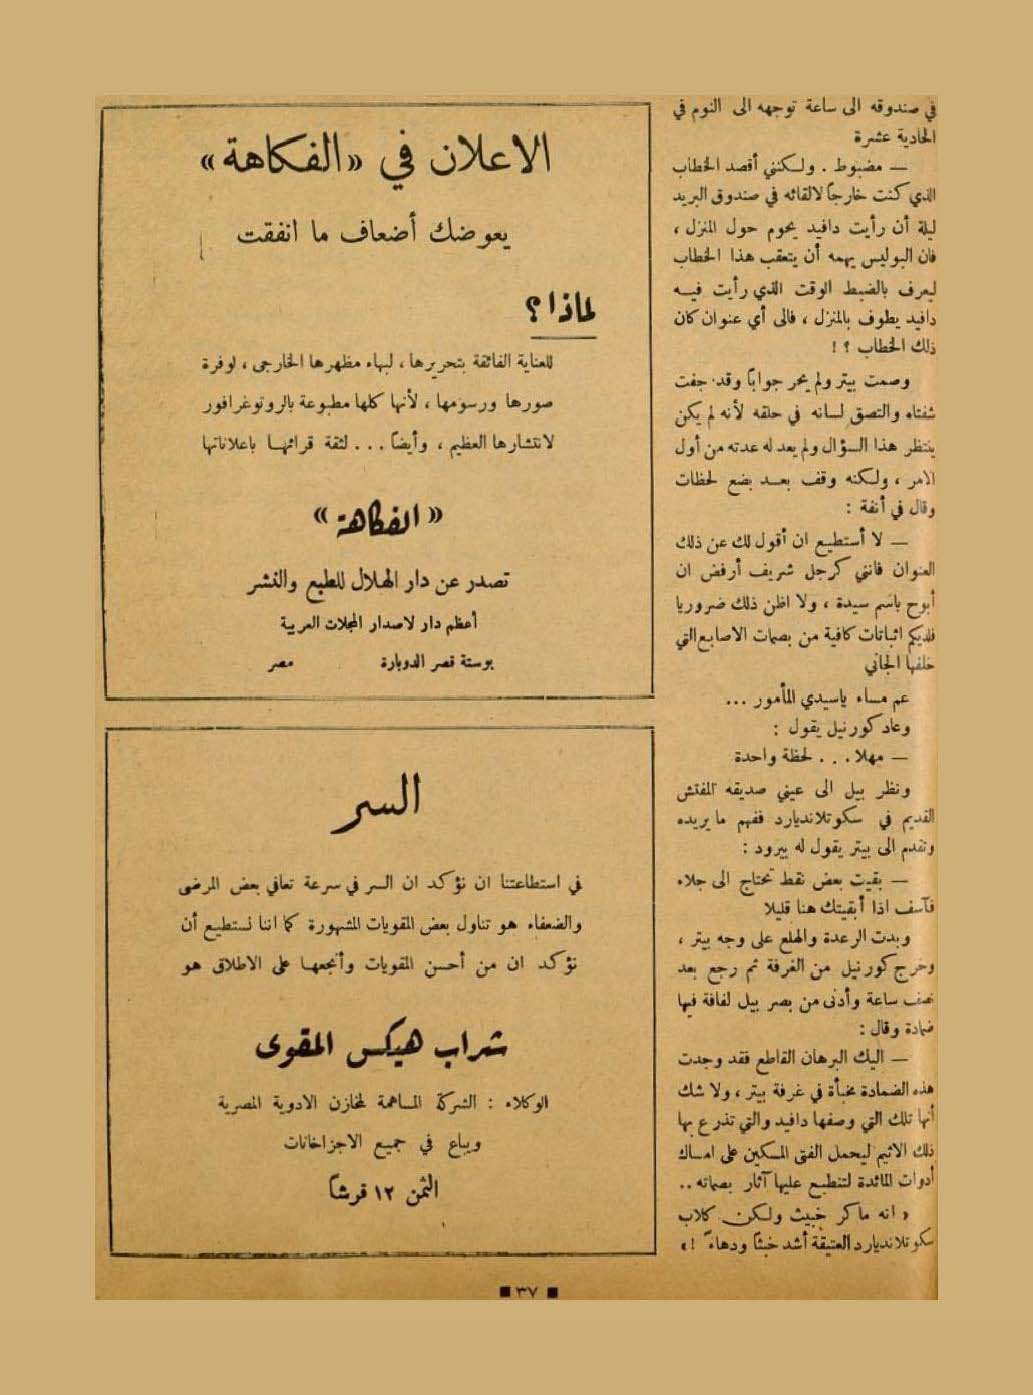 في صندوقه الى ساعة توجهه الى النوم في
الحادية عشرة
— مضبوط . ولكنني أقصد الخطاب
الذي كنت خارجاً لالقائه في صندوق البريد
ليلة أن رأيت دافيد يحوم حول المنزل ،
فان البوليس يهمه أن يتعقب هذا الخطاب
ليعرف بالضبط الوقت الذي رأيت فيه
دافيد يطوف بالمنزل ، فالى أي عنوان كان
ذلك الخطاب ؟ !
وصمت بيتر ولم يحر جواباً وقد جفت
شفتاه والتصق لسانه في حلقه لأنه لم يكن
ينتظر هذا السؤال ولم يعد له عدته من أول
الامر ، ولكنه وقف بعد بضع لحظات
وقال في أنفة :
— لا أستطيع ان أقول لك عن ذلك
العنوان فانني كرجل شريف أرفض ان
أبوح باسم سيدة ، ولا اظن ذلك ضروريا
فلديكم اثباتات كافية من بصمات الاصابع التي
خلفها الجاني
عم مساء ياسيدي المأمور ...
وعاد كورنيل يقول :
— مهلا . . . لحظة واحدة
ونظر بيل الى عيني صديقه المفتش
القديم في سكوتلانديارد ففهم ما يريده
وتقدم الى بيتر يقول له ببرود :
— بقيت بعض نقط تحتاج الى جلاء
فآسف اذا أبقيتك هنا قليلا
وبدت الرعدة والهلع على وجه بيتر ،
وخرج كورنيل من الغرفة ثم رجع بعد
نصف ساعة وأدنى من بصر بيل لفافة فيها
ضمادة وقال :
— اليك البرهان القاطع فقد وجدت
هذه الضمادة مخبأة في غرفة بيتر ، ولا شك
أنها تلك التي وصفها دافيد والتي تذرع بها
ذلك الاثيم ليحمل الفتى المسكين على امساك
أدوات المائدة لتنطبع عليها آثار بصماته ..
« انه ماكر خبيث ولكن كلاب
سكوتلانديارد العتيقة أشد خبثا ودهاء ! »
الاعلان في «الفكاهة»
يعوضك أضعاف ما انفقت
لماذا ؟
للعناية الفائقة بتحريرها ، لبهاء مظهرها الخارجي ، لوفرة
صورها ورسومها ، لأنها كلها مطبوعة بالروتوغرافور
لانتشارها العظيم ، وأيضاً . . . لثقة قرائها باعلاناتها
«الفكاهة»
تصدر عن دار الهلال للطبع والنشر
أعظم دار لاصدار المجلات العربية
بوستة قصر الدوبارة مصر
السر
في استطاعتنا ان نؤكد ان السر في سرعة تعافي بعض المرضى
والضعفاء هو تناول بعض المقويات المشهورة كما اننا نستطيع أن
نؤكد ان من أحسن المقويات وأنجعها على الاطلاق هو
شراب هيكس المقوى
الوكلاء : الشركة المساهمة لمخازن الادوية المصرية
ويباع في جميع الاجزاخانات
الثمن ١٢ قرشاً
■ ٣٧ ■